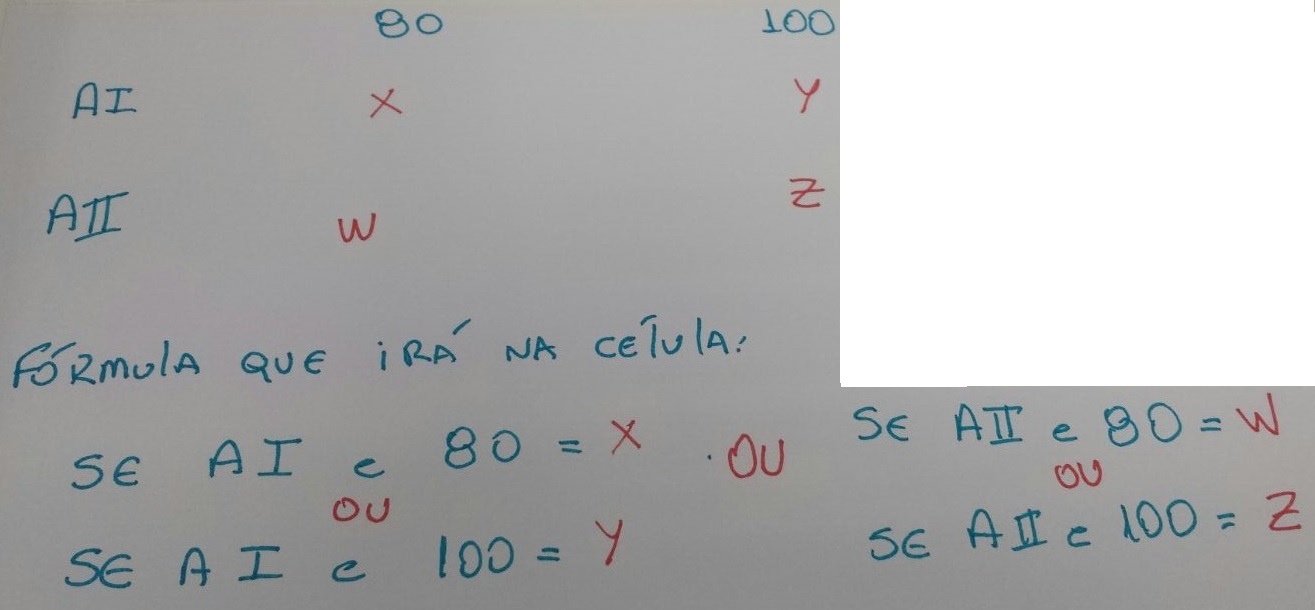 80 100
AI X Y
AII W Z
FÓRMULA QUE IRÁ NA CÉLULA:
SE AI e 80 = X . OU
OU
SE AI e 100 = Y
SE AII e 80 = W
OU
SE AII e 100 = Z